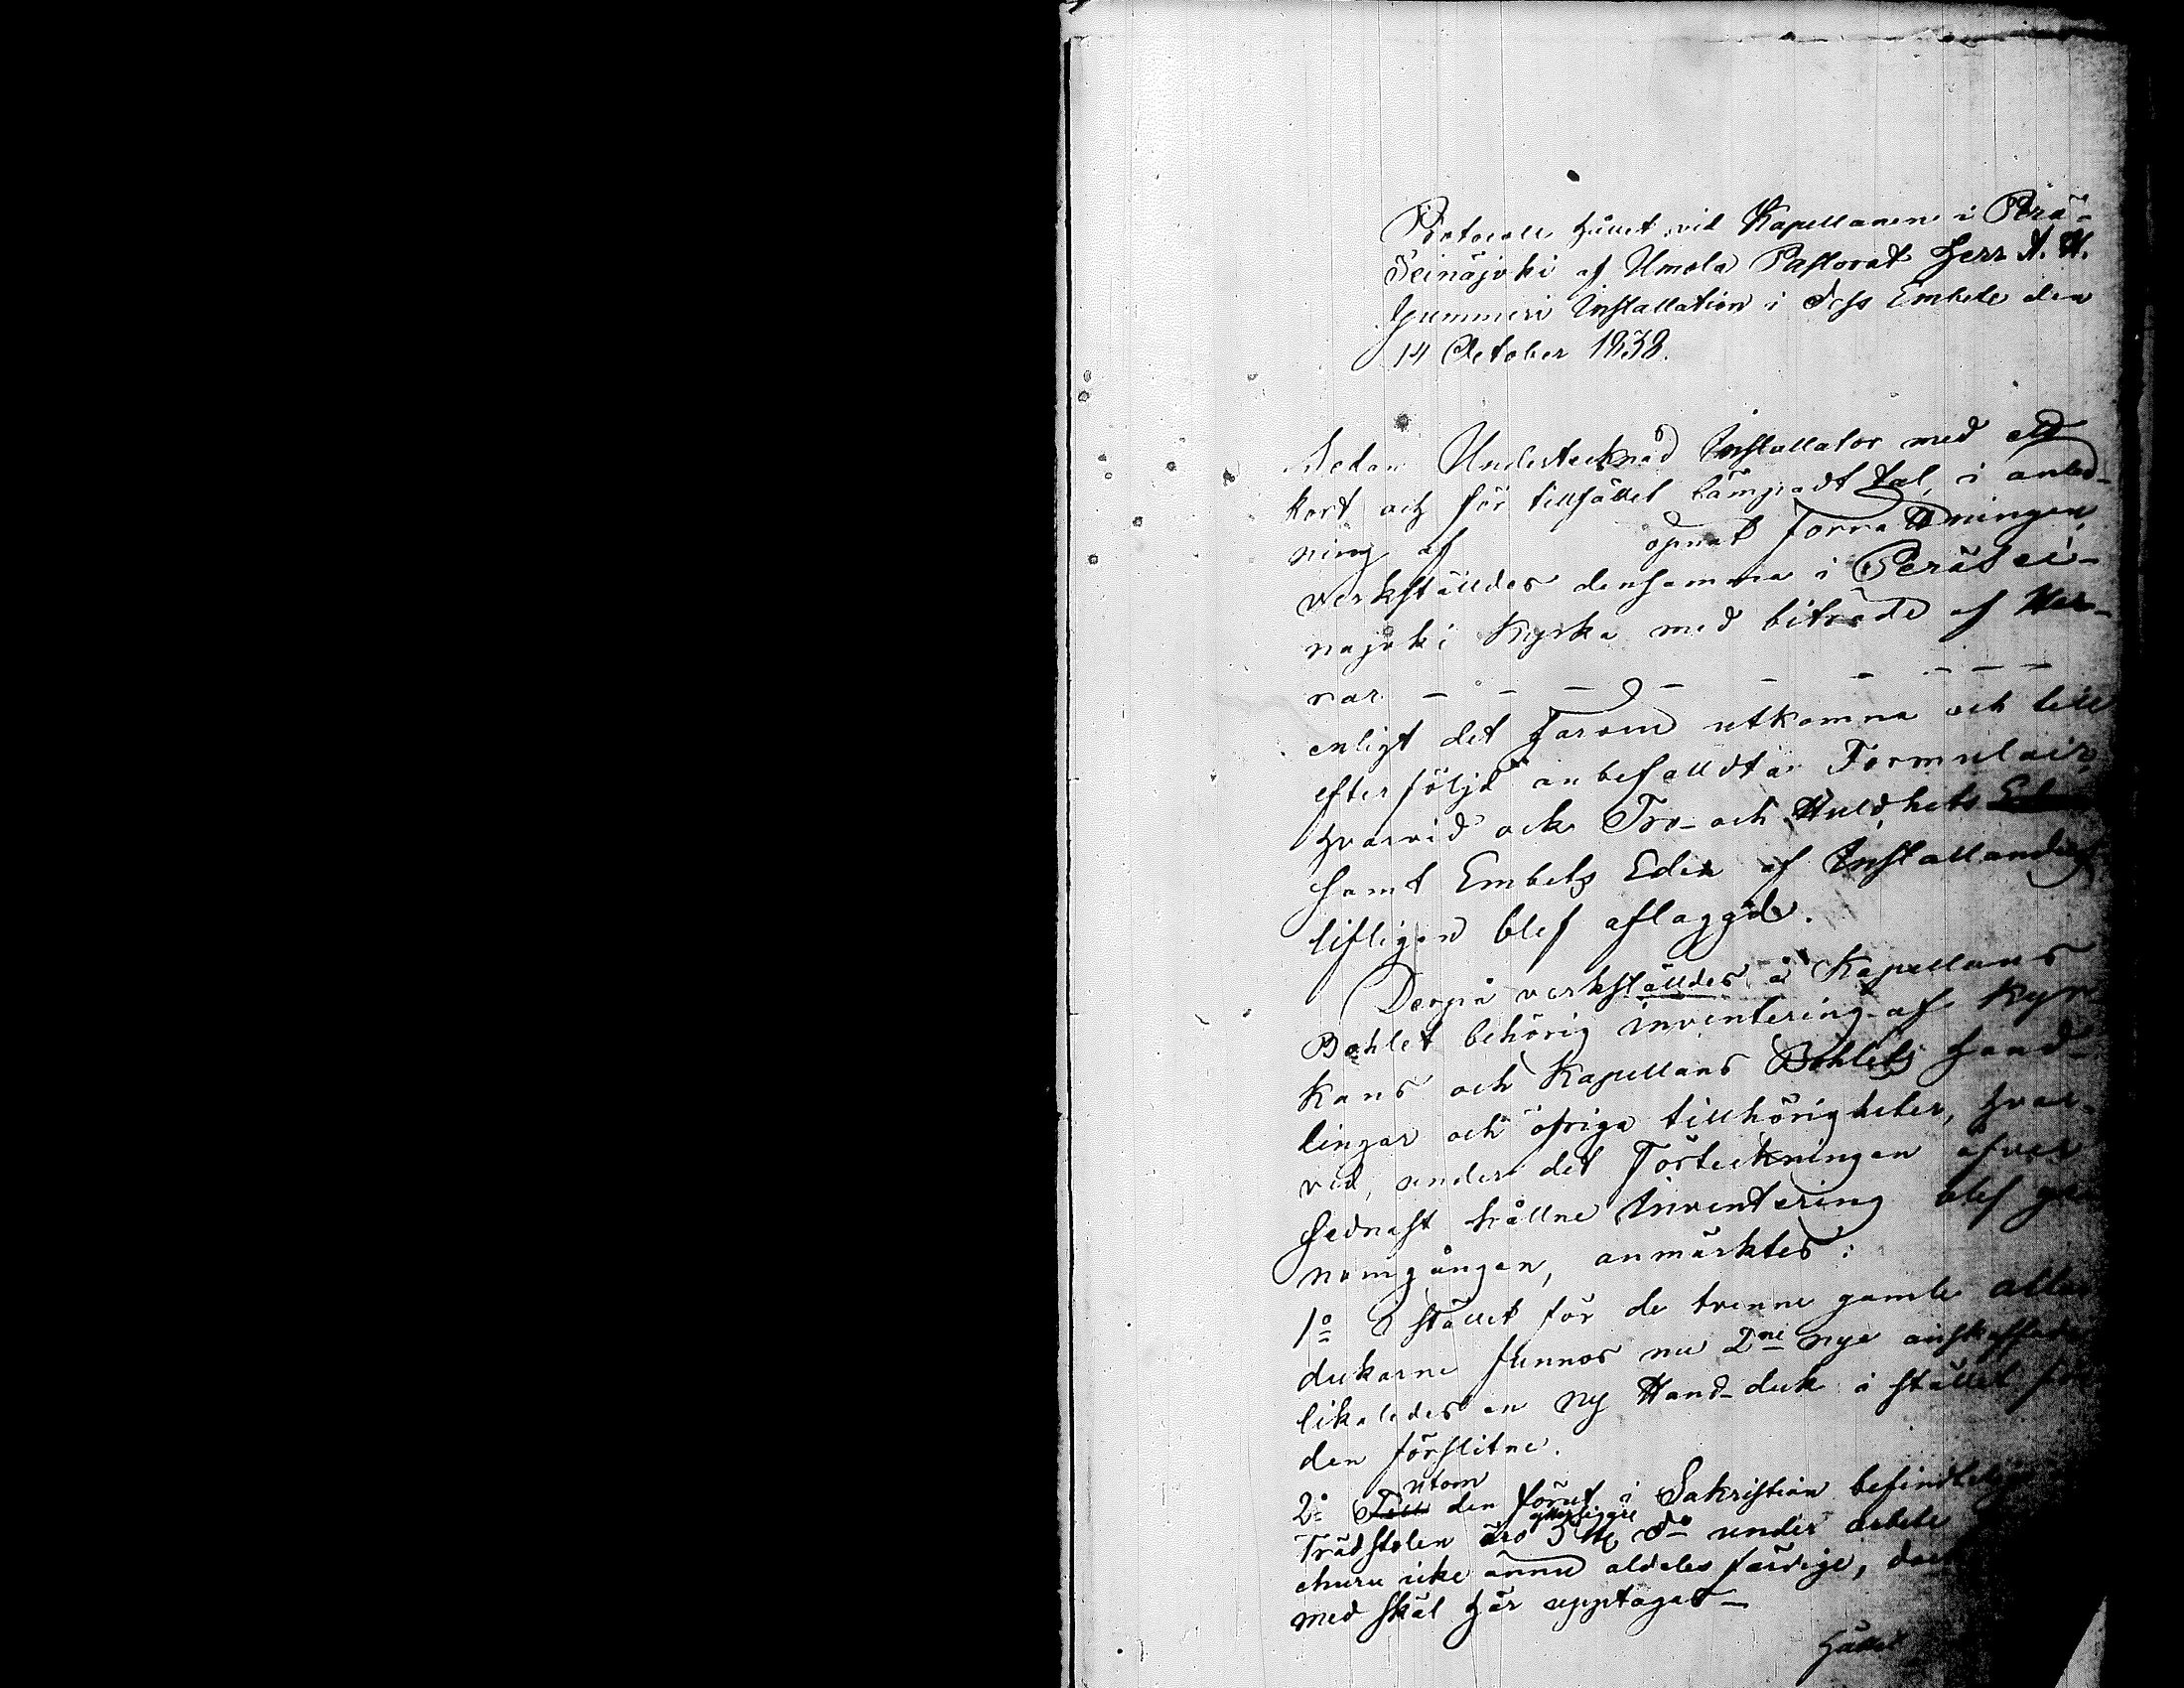 Protocoll hållet vid Kapellanen i Perä-
Seinäjoki af Ilmola Pastorat Herr A. H.
Gummeri Installation i dess Embete den
14 October 1838.
Sedan Undertecknad Installator med ett
kort och för tillfället lämpadt tal, i anled-
ning af opnat förrättningen,
verkställdes densamma i Peräsei-
näjoki Kyrka med biträde af Her-
rar - - - - - - - - -
enligt det härom utkomna och till
efterföljd anbefalldta Formulair,
hvarvid ock Tro- och Huldhets
samt Embets Eden af Installandus
lifligen blef aflaggde.
Derpå verkställdes å Kapellans
Bohlet behörig inventering af Kyr
kans och Kapellans Bohlets hand-
lingar och öfriga tillhörigheter, hvar-
vid, under det Förteckningen öfver
sednast hållne Inventering blef ge
nomgången, anmärktes:
1o I stället för de trenne gamle altar
dukarne funnos nu 2ne nya anskaffade
likaledes en ny Hand-duk i stället för
den förslitne.
utom
2o Till den förut i Sakristian befindtlige
ytterligare
Trädstolen äro 5 st do under arbete
ehuru icke ännu aldeles färdige, dock
med skäl här upptagas -